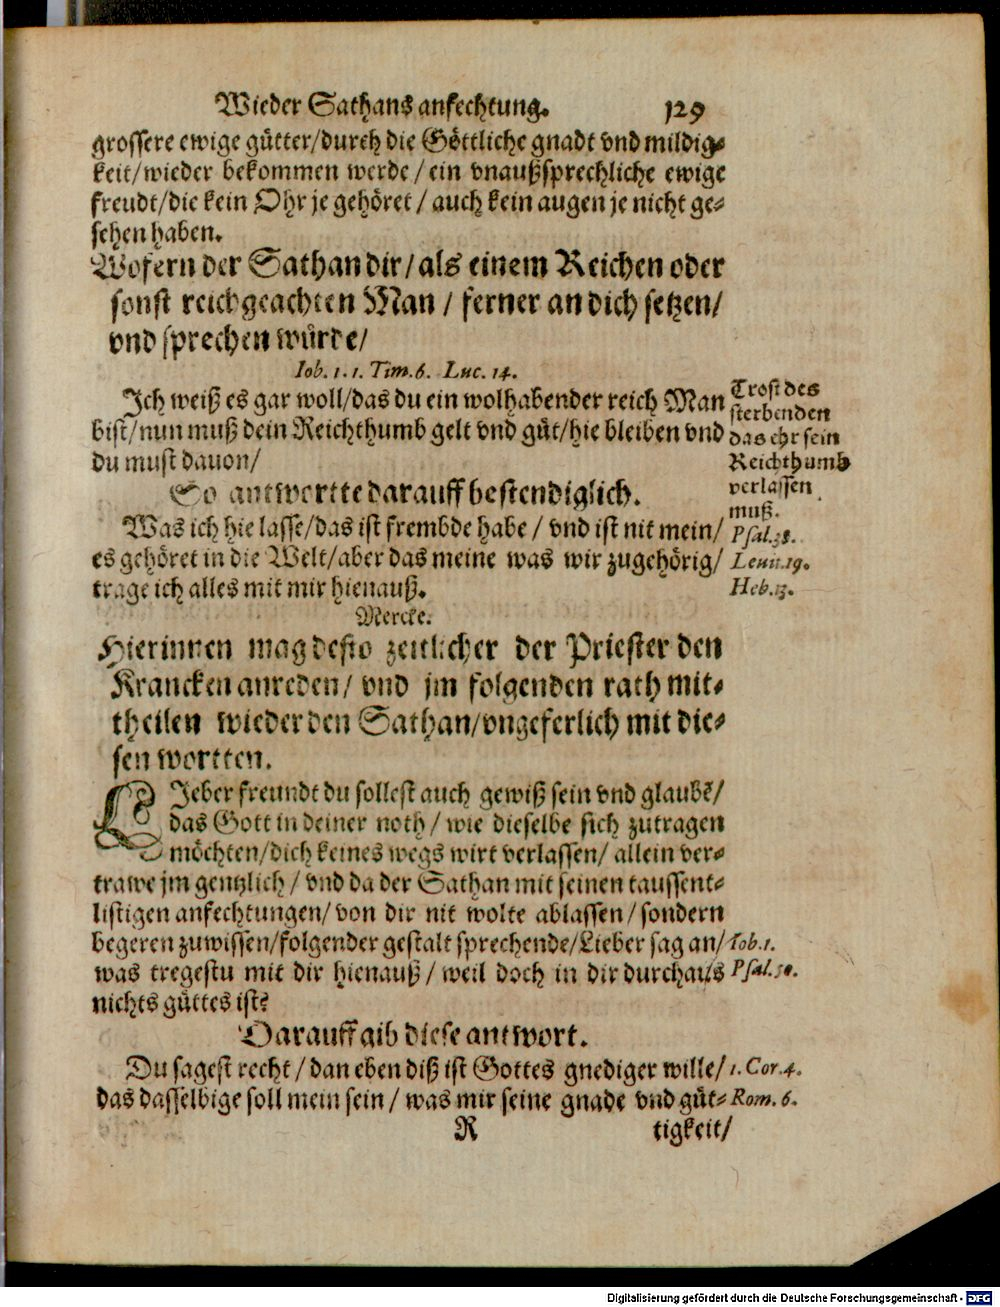 Wieder Sathans anfechtung. 129
grossere ewige gütter/durch die Göttliche gnadt vnd mildig-
keit/wieder bekommen werde / ein vnaußsprechliche ewige
freudt/die kein Ohr je gehöret / auch kein augen je nicht ge-
sehen haben.
Wofern der Sathan dir/als einem Reichen oder
sonst reichgeachten Man / ferner an dich setzen/
vnd sprechen würde/
Iob. 1. 1. Tim. 6. Luc. 14.
Ich weiß es gar woll/das du ein wolhabender reich Man
bist/nun muß dein Reichthumb gelt vnd güt/hie bleiben vnd
du must dauon/
Trost des
sterbenden
das ehr sein
Reichthumb
verlassen
muß.
So antwortte darauff bestendiglich.
Was ich hie lasse/das ist frembde habe / vnd ist nit mein/
es gehöret in die Welt/aber das meine was wir zugehörig/
trage ich alles mit mir hienauß.
Psal.38.
Leuit.19.
Heb.13.
Mercke.
Hierinnen mag desto zeitlicher der Priester den
Krancken anreden/ vnd jm folgenden rath mit-
theilen wieder den Sathan/vngeferlich mit die-
sen wortten.
LIeber freundt du sollest auch gewiß sein vnd glaubē/
das Gott in deiner noth / wie dieselbe sich zutragen
möchten/dich keines wegs wirt verlassen/ allein ver-
trawe jm gentzlich / vnd da der Sathan mit seinen taussent-
listigen anfechtungen/von dir nit wolte ablassen/sondern
begeren zuwissen/folgender gestalt sprechende/Lieber sag an/ Iob.1.
was tregestu mit dir hienauß/weil doch in dir durchaus Psal.50.
nichts güttes ist?
Darauff gib diese antwort.
Du sagest recht / dan eben diß ist Gottes gnediger wille/ 1. Cor. 4.
das dasselbige soll mein sein / was mir seine gnade vnd güt- Rom. 6.
R tigkeit/
Digitalisierung gefördert durch die Deutsche Forschungsgemeinschaft - DFG